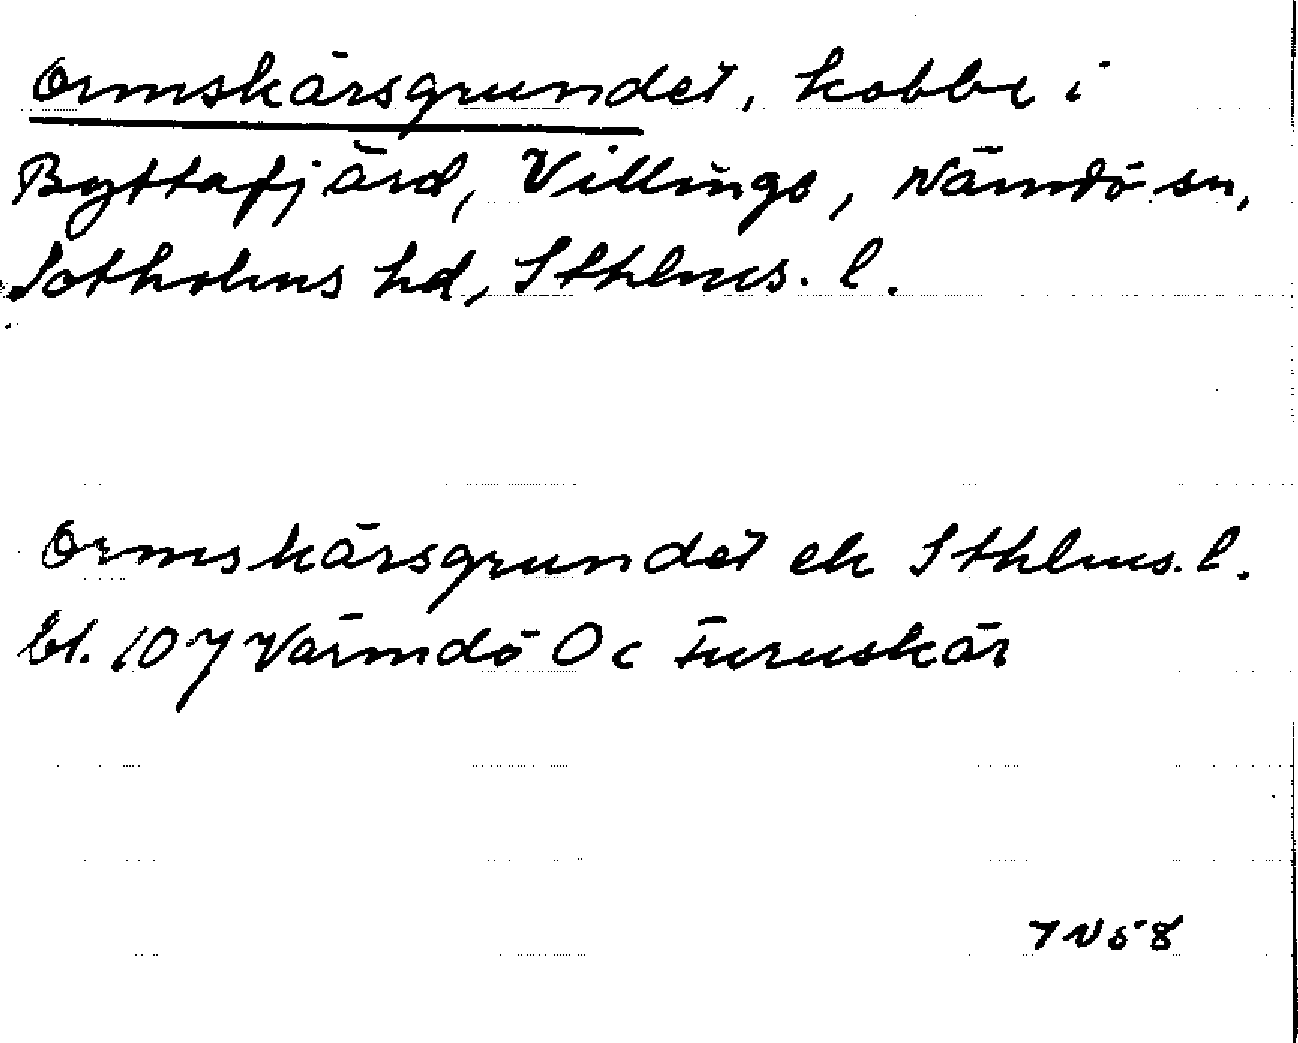 Ormskärsgrundet, kobbe i
Byttafjärd, Villinge, Nämdö sn,
Sotholms hd, Sthlms. l.
Ormskärsgrundet ek Sthlms. l.
bl. 107 Värmdö Oc Furuskär
7N58